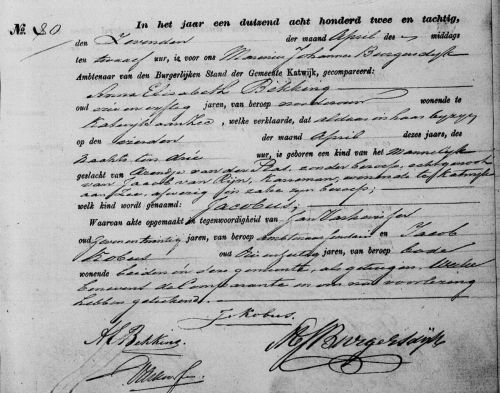 No. 80
In het jaar een duizend acht honderd twee en tachtig,
den Zevenden der maand April des middags
ten twaalf uur, is voor ons Marinus Johannes Burgersdijk
Ambtenaar van den Burgerlijken Stand der Gemeente Katwijk, gecompareerd:
Anna Elisabeth Bekking
oud jaren, van beroep wonende te
Katwijk aan Zee, welke verklaarde, dat aldaar in haar bijzijn
op den vierden der maand April dezes jaars, des
nachts ten drie uur, is geboren een kind van het Mannelijke
geslacht van van der Plas, zonder beroep, echtgenoote
van van Rijn, wonende te Katwijk
aan Zee, in zake zijn beroep;
welk kind wordt genaamd: Jacobus;
Waarvan akte opgemaakt in tegenwoordigheid van Jan
oud jaren, van beroep en Jacob
Kobus oud jaren, van beroep bode
wonende beiden in deze gemeente, als getuigen. Welke
benevens de Comparante en ons na voorlezing
hebben geteekend.
J. Kobus.
A E Bekking.
M J Burgersdijk